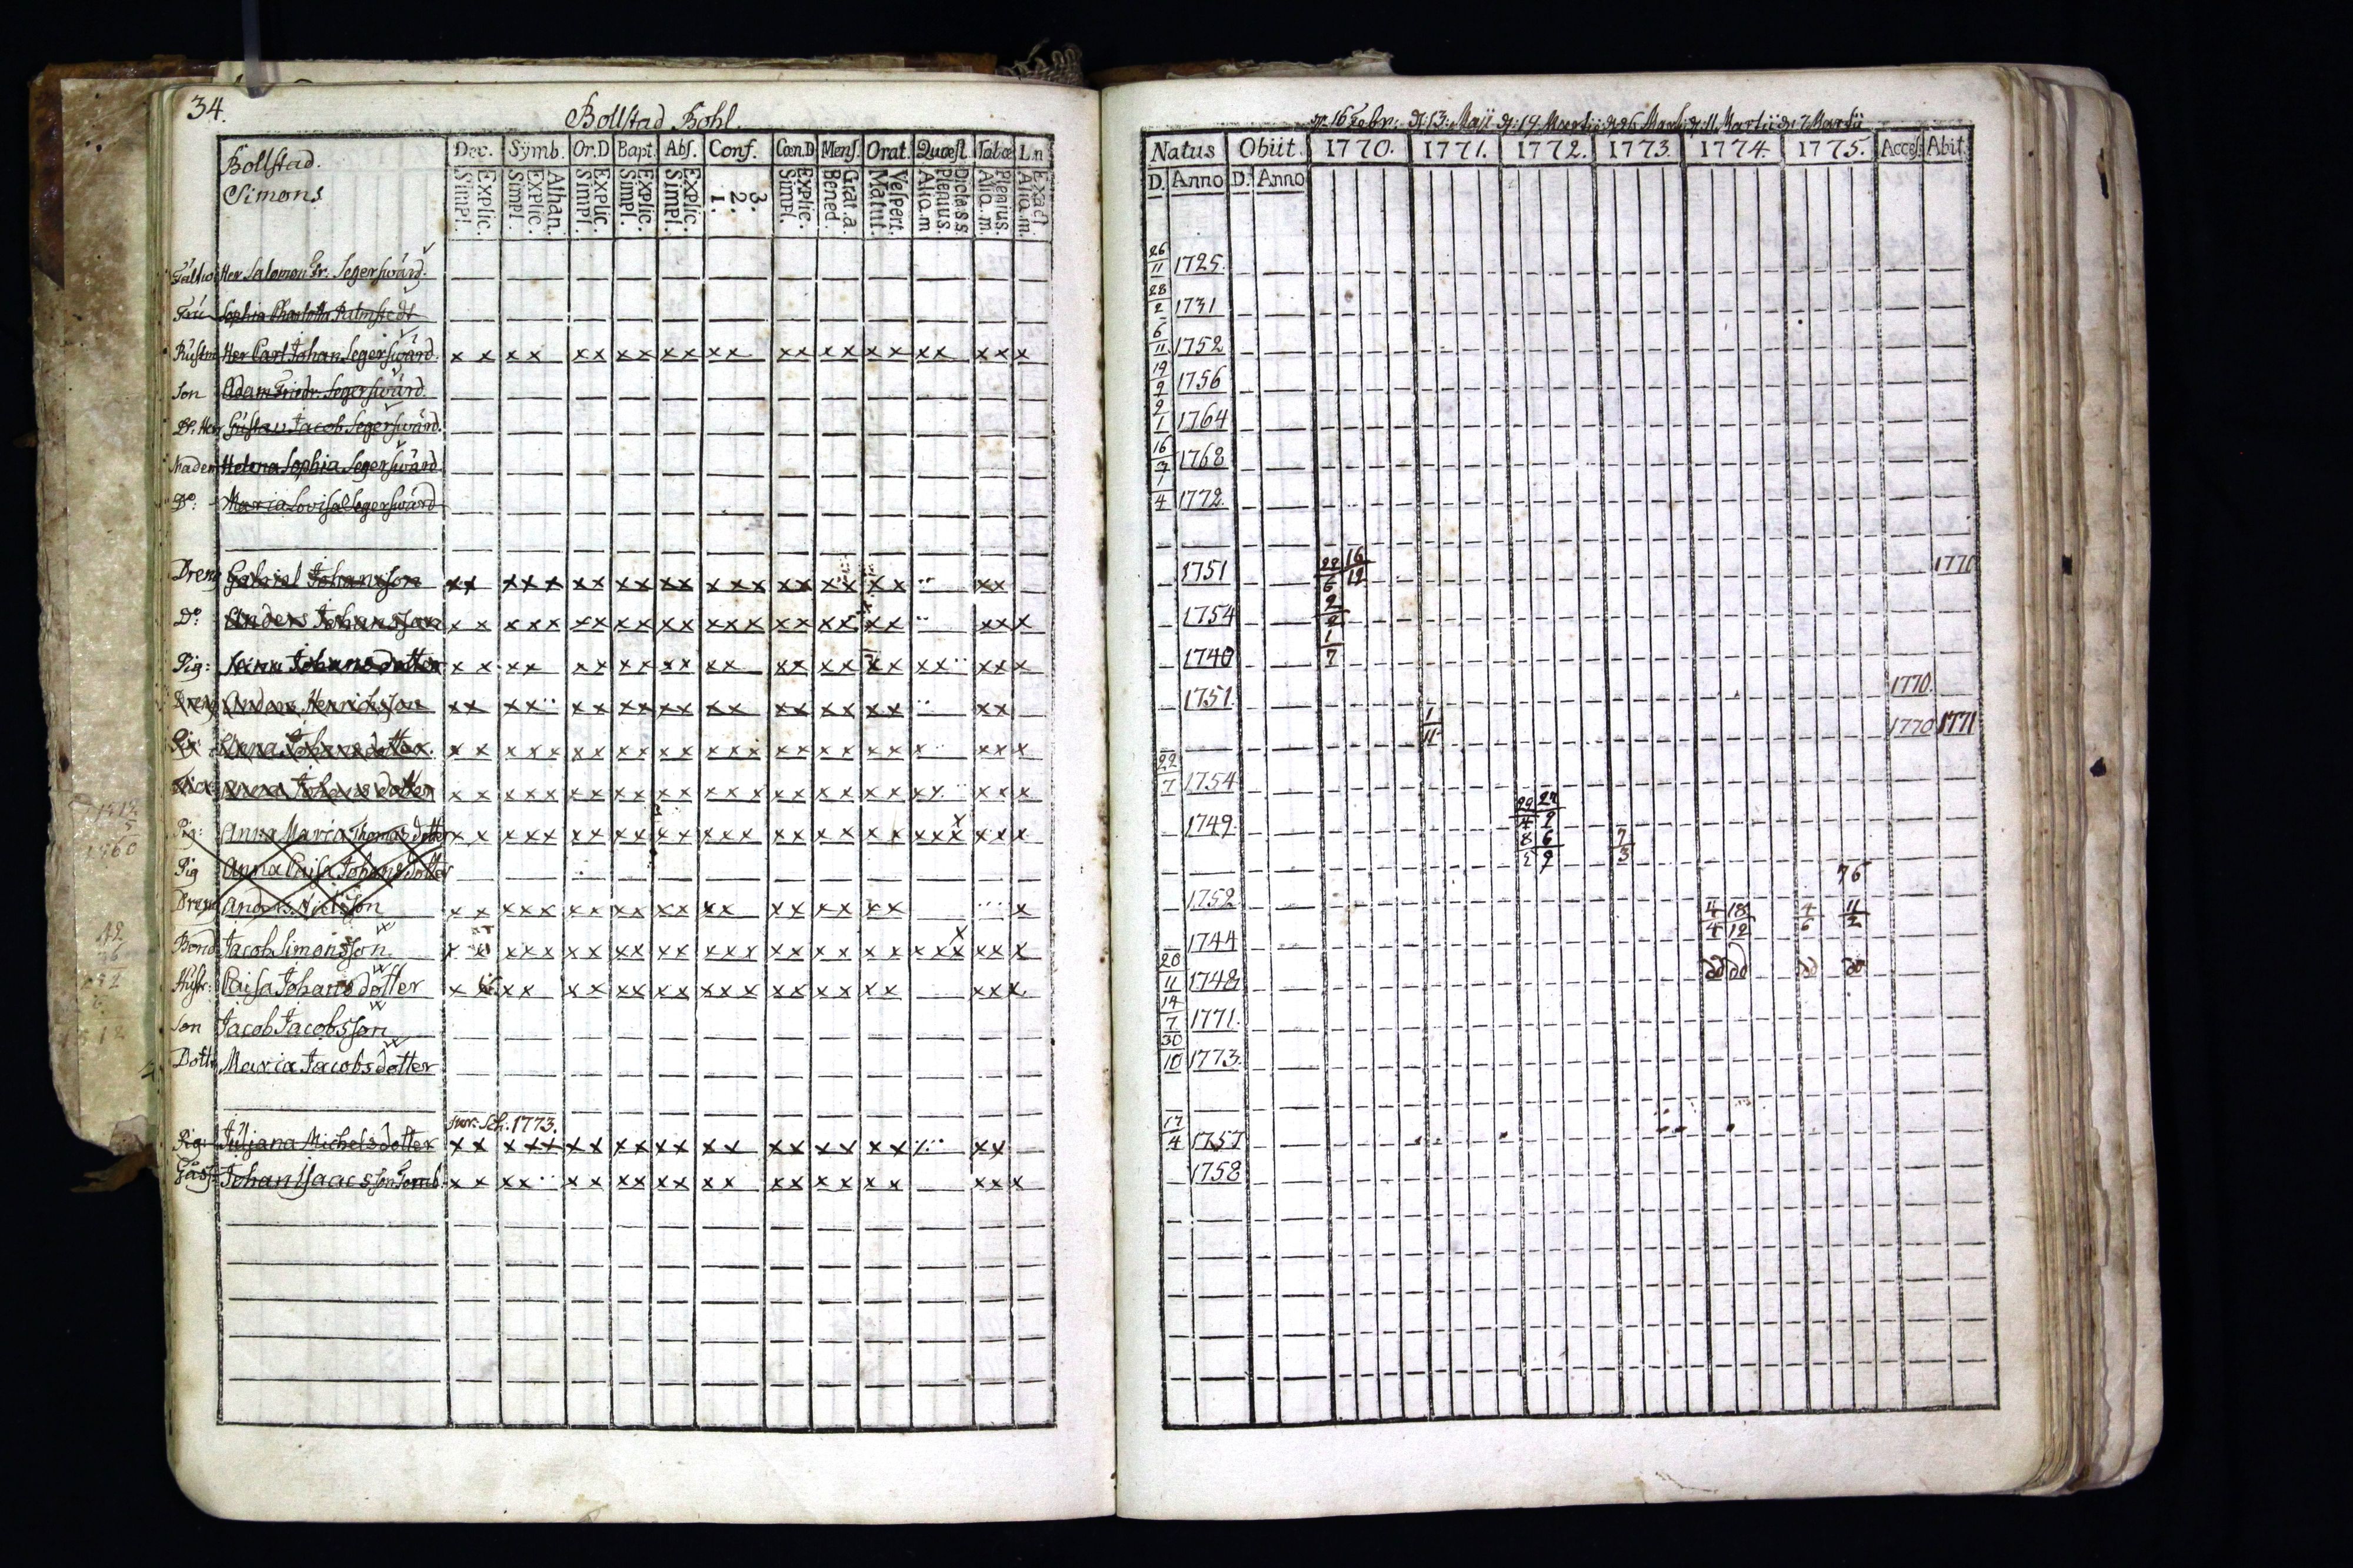 34.
Bollstad Bohl.
Bollstad.
Simons
Dec. Symb. Or.D Bapt. Abs. Conf. Cœn.D Mens. Orat. Quæst. Tabœ L.n
Explic. Simpl. Athan. Explic. Simpl. Explic. Simpl. Explic. Simpl. Explic. Simpl. 3. 2. 1. Explic. Simpl. Grat.a. Bened. Vespert. Matut. Dicta s.s. Plenius. Aliq.m Plenius. Aliq.m. Exact. Aliq.m.
Her Salomon Fr. Segerswärd.
Frú Sophia Charlotta Palmstedt
Her Carl Johan Segerswärd. x x x x x x x x x x x x x x x x x x x x x x x
Son Adam Friedr. Segerswärd.
Do. Her Gustav Jacob Segerswärd.
Madem Helena Sophia Segerswärd
Do: Maria Lovisa Segerswärd
Dreng Gabriel Johansson x x x x x x x x x x x x x x x x x x x x x x
Do. Anders Johansson x x x x x x x x x x x x x x x x x x x x x x x
Pig: Johansdotter x x x x x x x x x x x x x x x x x x x x x x x
Dreng Anders Henricsson x x x x x x x x x x x x x x x x x x x x
Johansdotter x x x x x x x x x x x x x x x x x x x x x x x x
Johansdotter x x x x x x x x x x x x x x x x x x x x x x x x x
Pig: Anna Maria Thomasdotter x x x x x x x x x x x x x x x x x x x x x x x x x
Pig Anna Caisa Johansdotter
Dreng x x x x x x x x x x x x x x x x x x x x
Bond Jacob Simonsson x x x x x x x x x x x x x x x x x x x x x x x x x
Hustr: Caisa Johansdotter x x x x x x x x x x x x x x x x x x x x x
Son Jacob Jacobsson
Dottr Maria Jacobsdotter
Sch. 1773.
Pig: Juljana Michelsdotter x x x x x x x x x x x x x x x x x x x x x
Johan Isaacsson x x x x x x x x x x x x x x x x x x x x x
16 Febr. 13 Maji 19 Martii 26 Martii 11 Martii 7 Martii
Natus Obiit. 1770. 1771. 1772. 1773. 1774. 1775. Access. Abit.
D. Anno D. Anno
26/11 1725.
28/2 1731
6/11 1752
19/9 1756
2/1 1764
16/7 1768
1/4 1772.
1751 22/6 16/12 1770
1754 2/2
1740 1/7
1751. 1770.
1/11 1770 1771
22/7 1754
1749. 22/4 8 6 7/3
76
1752
1744 4/4 18/12 4/6 11/2
20/11 1748 dd dd dd dd
14/7 1771.
30/10 1773.
17/4 1757
1758